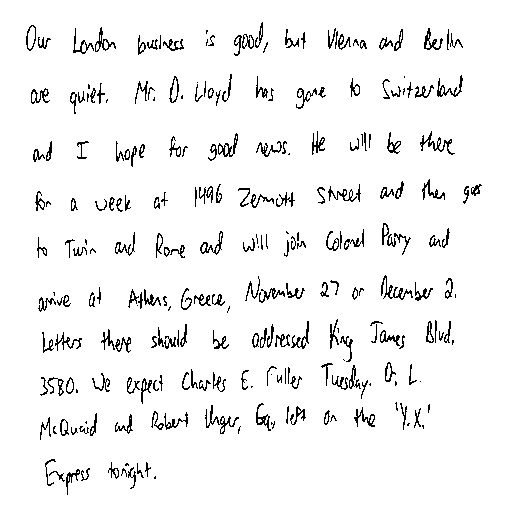 Our London business is good, but Vienna and Berlin
are quiet. Mr. D. Lloyd has gone to Switzerland
and I hope for good news. He will be there
for a week at 1496 Zermott Street and then goes
to Turin and Rome and will join Colonel Parry and
arrive at Athens, Greece, November 27 or December 2.
Letters there should be addressed King James Blvd.
3580. We expect Charles E. Fuller Tuesday. Dr. L.
McQuaid and Robert Unger, Esq., left on the 'Y.X.'
Express tonight.